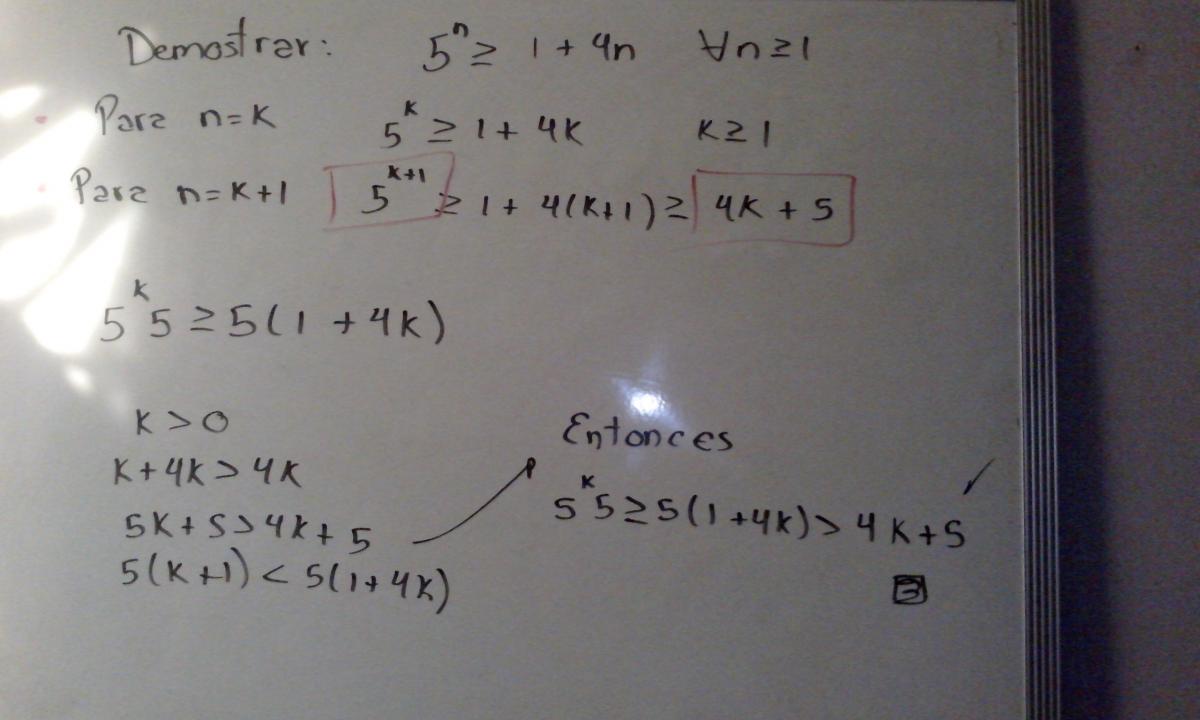 Demostrar: 5^n ≥ 1 + 4n ∀n ≥ 1
Para n=k 5^k ≥ 1 + 4k k ≥ 1
Para n=k+1 5^{k+1} ≥ 1 + 4(k+1) ≥ 4k + 5
5^k 5 ≥ 5(1 + 4k)
k > 0
k + 4k > 4k
5k + 5 > 4k + 5
5(k+1) < 5(1+4k)
Entonces
5^k 5 ≥ 5(1+4k) > 4k+5